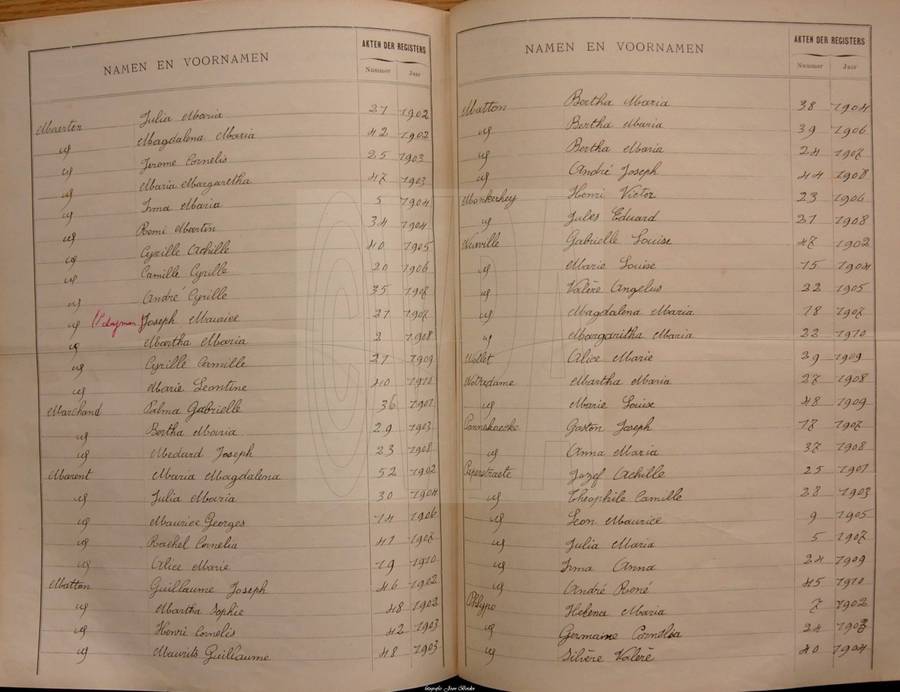 NAMEN EN VOORNAMEN
AKTEN DER REGISTERS
Nummer Jaar
Maerten Julia Maria 27 1902
id Magdalena Maria 42 1902
id Jerome Cornelis 25 1903
id Maria Margaretha 47 1903
id Irma Maria 5 1904
id Remi Martin 34 1904
id Cyrille Achille 40 1905
id Camille Cyrille 20 1906
id André Cyrille 35 1907
id Joseph Maurice 21 1907
id Martha Maria 2 1908
id Cyrille Camille 21 1909
id Marie Leontine 40 1910
Marchand Palma Gabrielle 36 1901
id Bertha Maria 29 1903
id Medard Joseph 23 1908
Marent Maria Magdalena 52 1902
id Julia Maria 30 1904
id Maurice Georges 14 1906
id Rachel Cornelia 41 1907
id Alice Marie 19 1910
Matton Guillaume Joseph 46 1902
id Martha Sophie 48 1902
id Henri Cornelis 42 1903
id Maurits Guillaume 48 1903
NAMEN EN VOORNAMEN
AKTEN DER REGISTERS
Nummer Jaar
Matton Bertha Maria 38 1904
id Bertha Maria 39 1906
id Bertha Maria 24 1907
id André Joseph 44 1908
Monkerhey Henri Victor 23 1906
id Jules Eduard 21 1908
Neuville Gabrielle Louise 47 1902
id Marie Louise 15 1904
id Valère Angelus 22 1905
id Magdalena Maria 18 1907
id Margaritha Maria 22 1910
Nollet Alice Marie 29 1909
Notredame Martha Maria 27 1908
id Marie Louise 48 1909
Pannekoecke Gaston Joseph 17 1907
id Anna Maria 37 1908
Paperstraete Jozef Achille 25 1901
id Theophile Camille 28 1903
id Leon Maurice 9 1905
id Julia Maria 5 1907
id Irma Anna 24 1909
id André René 45 1910
Phlypo Helena Maria 7 1902
id Germaine Cornelia 24 1903
id Silvère Valère 40 1904